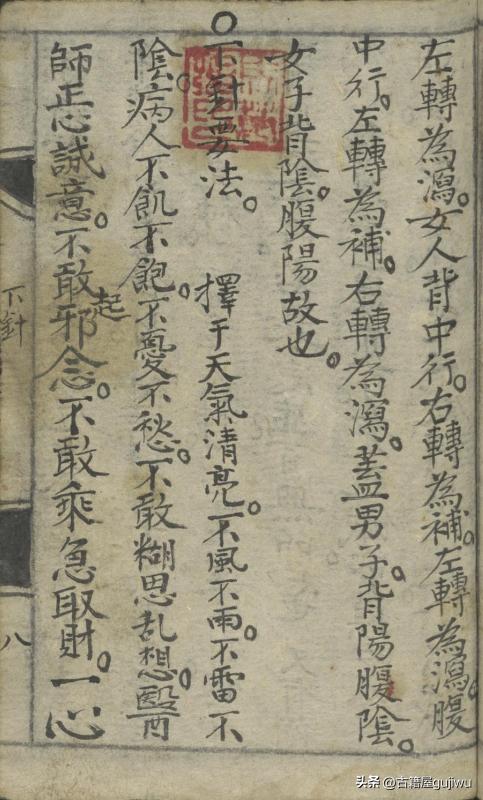 左轉為瀉。女人背中行。右轉為補。左轉為瀉。腹
中行。左轉為補。右轉為瀉。蓋男子。背陽腹陰。
女子背陰。腹陽故也。
○下針要法。 擇于天氣清亮。不風不雨。不雷不
陰。病人不飢不飽。不憂不愁。不敢糊思乱想。醫
師忑誠意。不敢起邪念。不敢乘急取財。一心
下針
八
头条 @古籍屋gujiwu